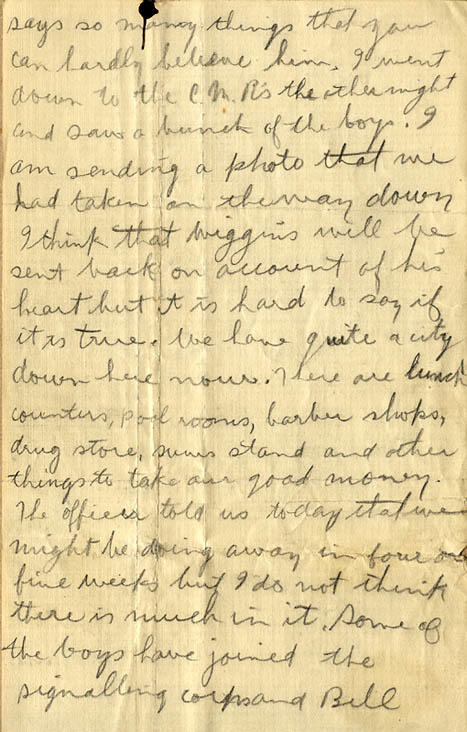 says so many things that you
can hardly believe him. I went
down to the C.M.R's the other night
and saw a bunch of the boys. I
am sending a photo that we
had taken on the way down
I think that Wiggins will be
sent back on account of his
heart but it is hard to say if
it is true. We have quite a city
down here now. There are lunch
counters, pool rooms, barber shops,
drug store, news stand and other
things to take our good money.
The officer told us today that we
might be going away in four or
five weeks but I do not think
there is much in it. Some of
the boys have joined the
signalling corps and Bill